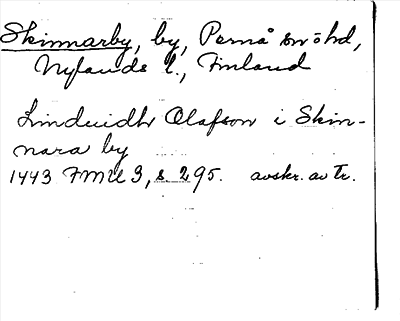 Skinnarby, by, Pernå sn o hd,
Nylands l., Finland
Linduidh Olafson i Skin-
nara by
1443 FMU 3, s. 295. avskr. av tr.